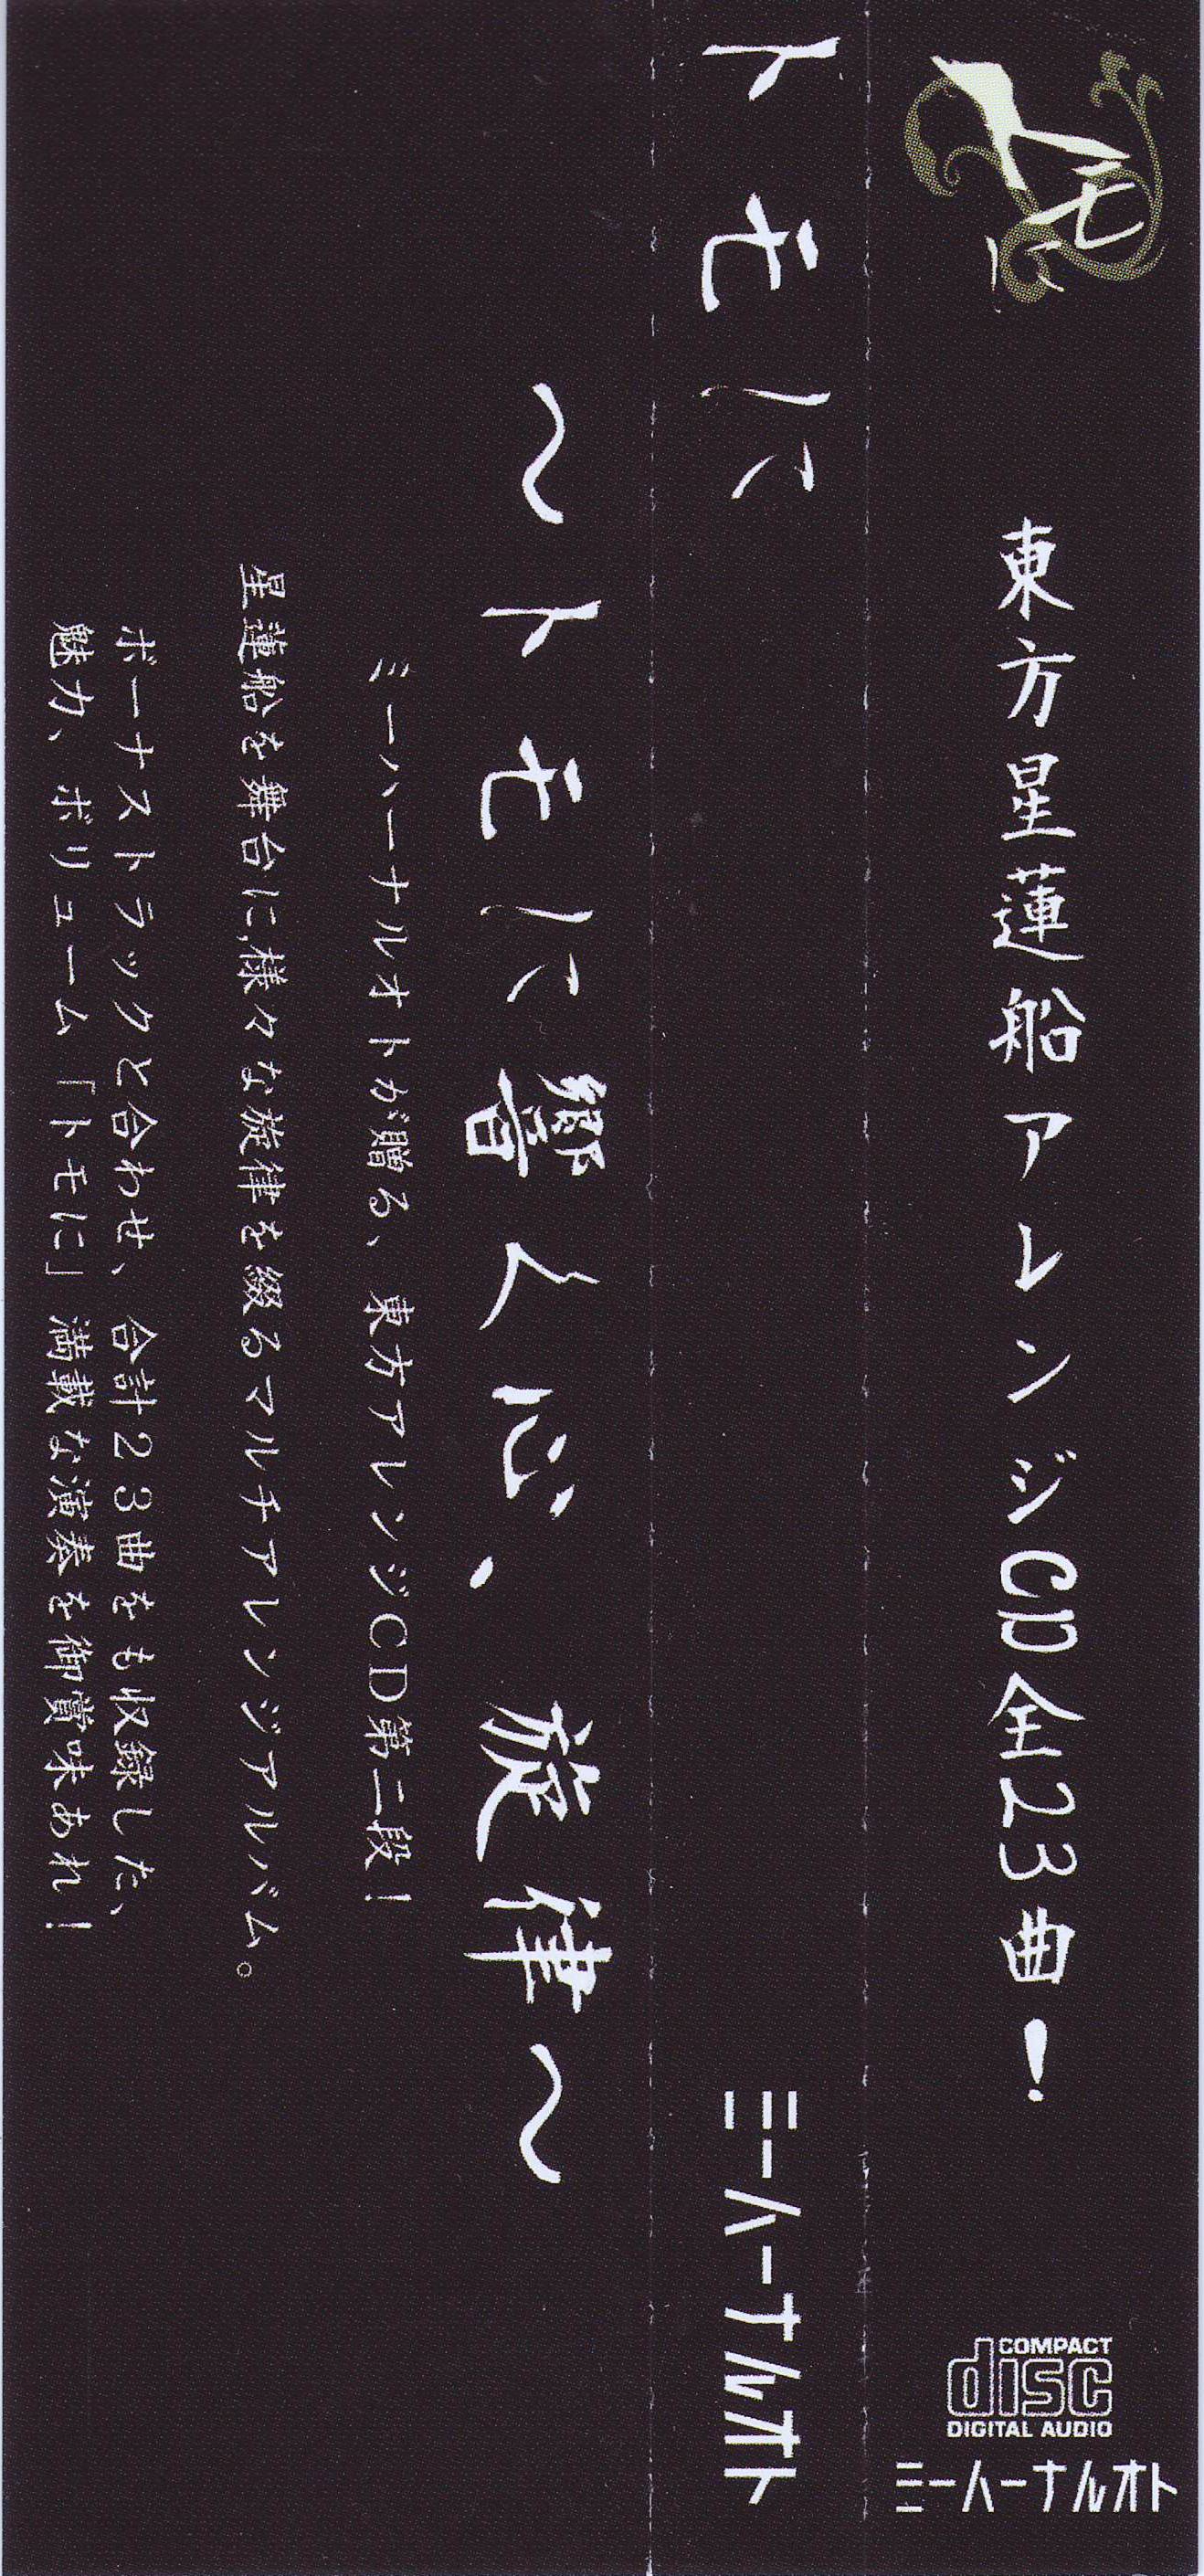 トモに
東方星蓮船アレンジCD全23曲!
COMPACT
disc
DIGITAL AUDIO
ミーハーナルオト
トモに
ミーハーナルオト
〜トモに響く心、旋律〜
ミーハーナルオトが贈る、東方アレンジCD第二段!
星蓮船を舞台に、様々な旋律を綴るマルチアレンジアルバム。
ボーナストラックと合わせ、合計23曲をも収録した、
魅力、ボリューム「トモに」満載な演奏を御賞味あれ!